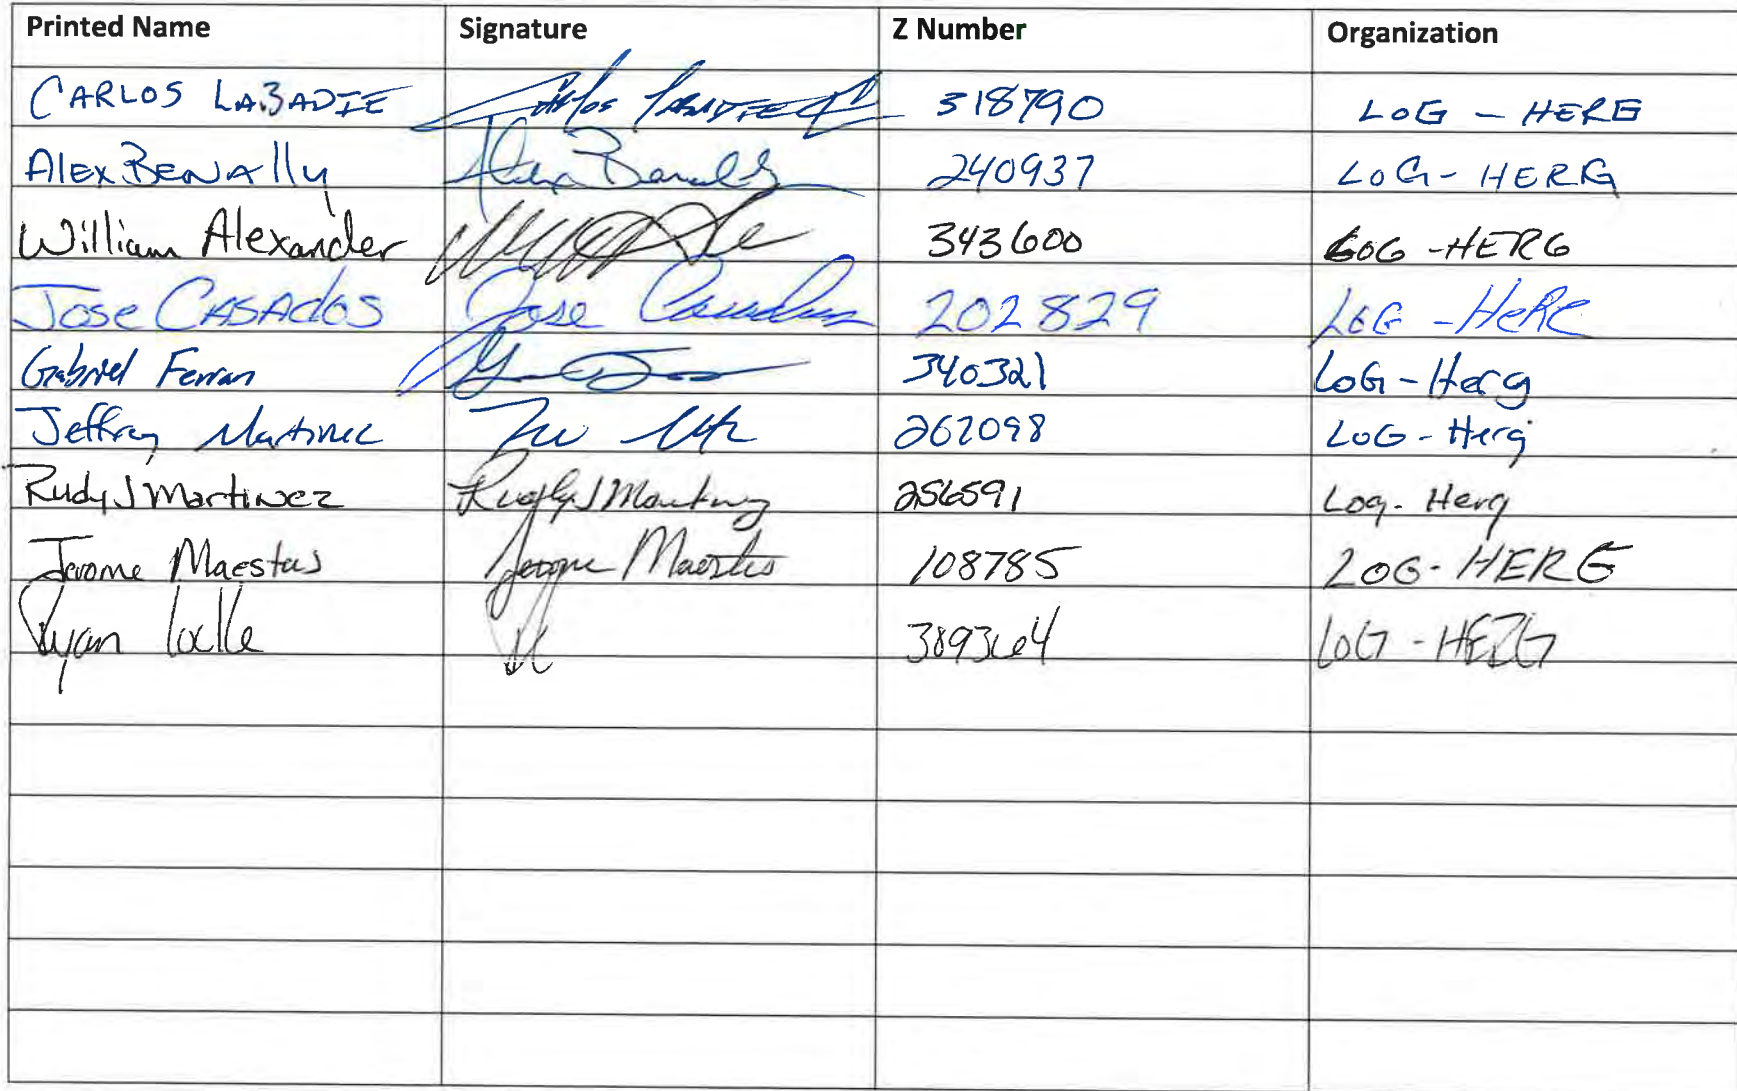 Printed Name Signature Z Number Organization
CARLOS LABADIE Carlos Labadie 318790 LOG - HERG
Alex BENAlly Alex Benally 240937 LOG - HERG
William Alexander 343600 LOG - HERG
Jose CASAdos Jose Casados 202829 LOG - HeRG
Gabriel Ferran 340321 LOG - Herg
Jeffrey Martinez 262098 LOG - Herg
Rudy J Martinez Rudy J Martinez 256591 Log - Herg
Jerome Maestas Jerome Maestas 108785 LOG - HERG
Ryan 389364 LOG - HERG